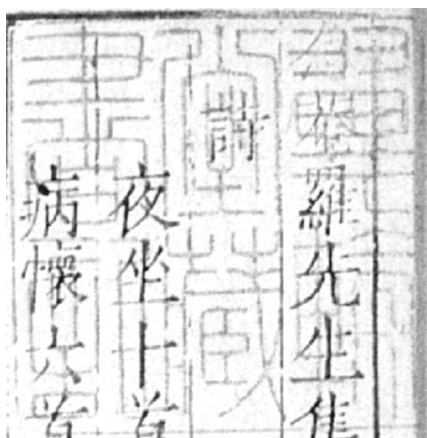 念菴羅先生集
詩
夜坐十首
病懷六首